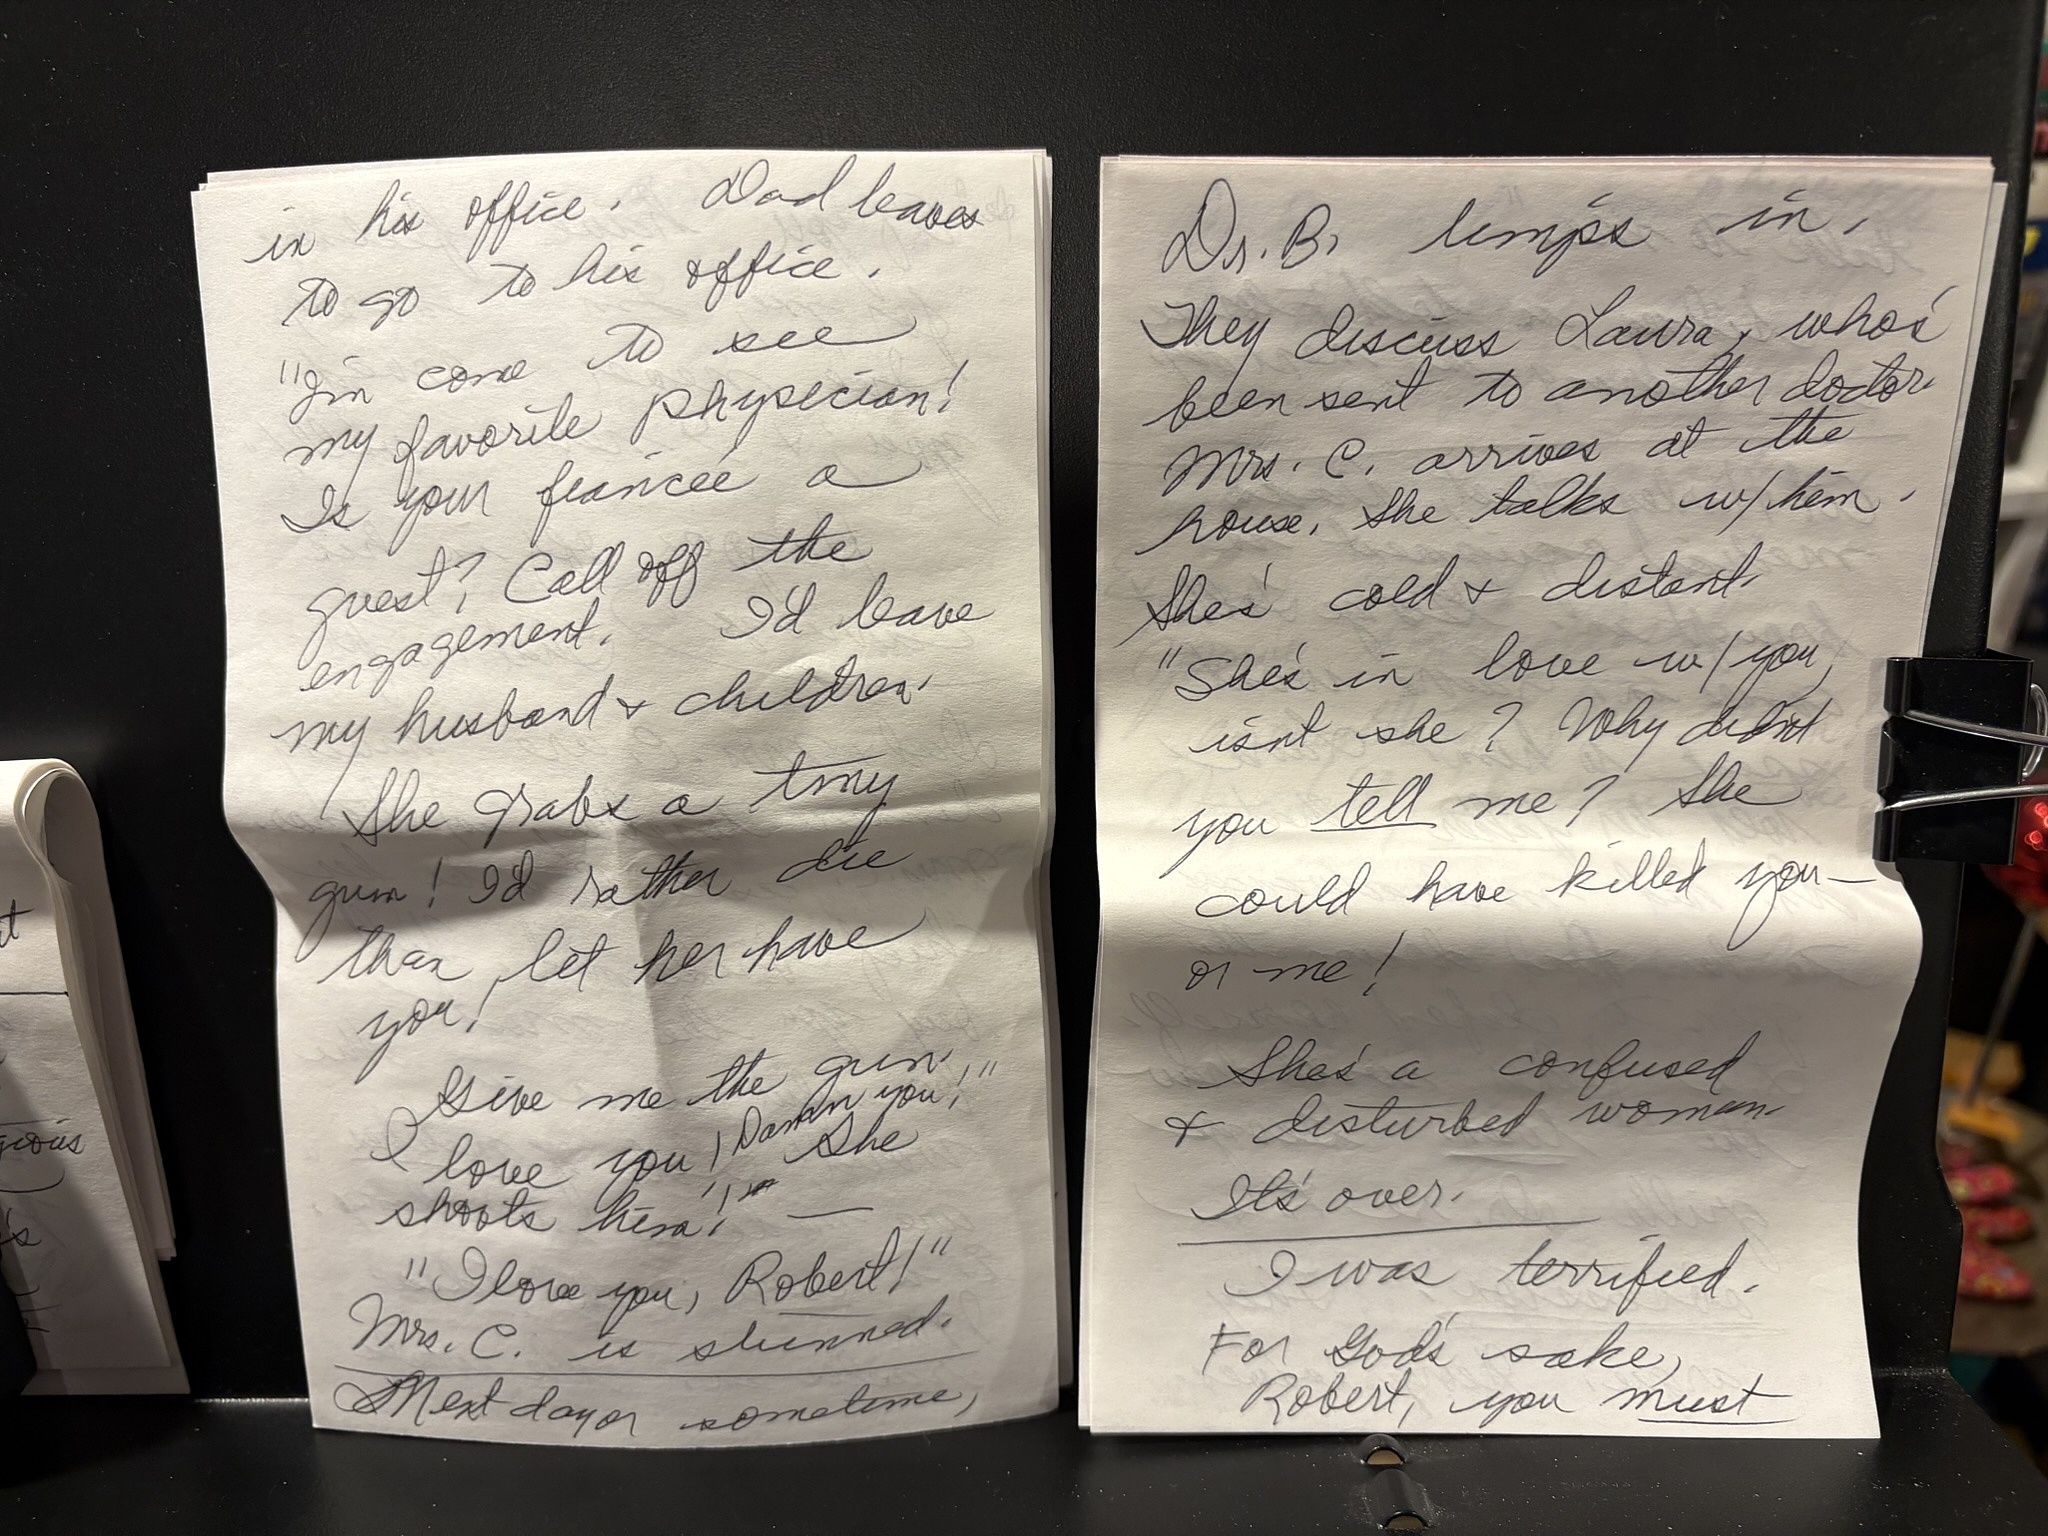 in his office. Dad leaves
to go to his office.
"I'm come to see
my favorite physician!
Is your fiancée a
guest? Call off the
engagement. I'd leave
my husband & children.
She grabs a tiny
gun! I'd rather die
than let her have
you!
Give me the gun.
I love you! Damn you!" She
shoots him!
"I love you, Robert!"
Mrs. C. is stunned.
Next day or sometime,
Dr. B. limps in.
They discuss Laura, who's
been sent to another doctor
Mrs. C. arrives at the
house. She talks w/ him.
She's cold & distant.
"She's in love w/ you,
isn't she? Why didn't
you tell me? She
could have killed you—
or me!
She's a confused
& disturbed woman.
It's over.
I was terrified.
For God's sake,
Robert, you must